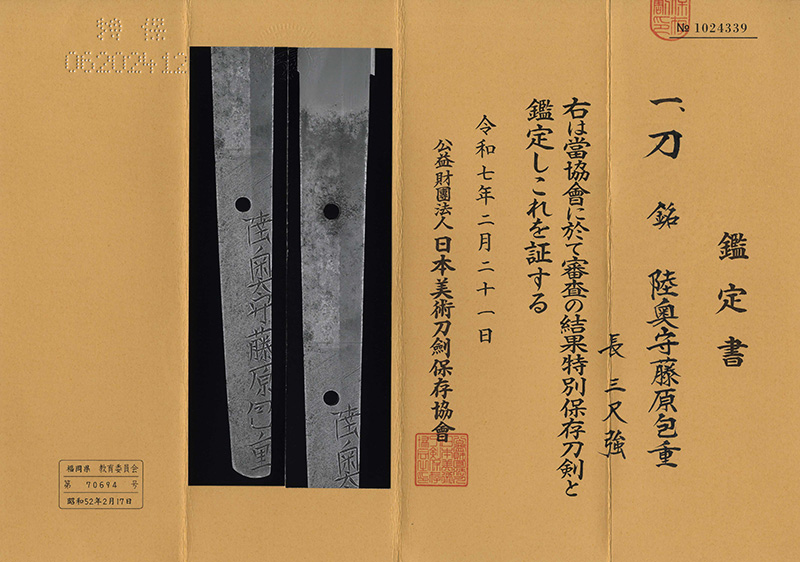 № 1024339
鑑定書
一、刀 銘 陸奥守藤原包重
長 三尺強
右は當協會に於て審査の結果特別保存刀剣と
鑑定しこれを証する
令和七年二月二十一日
公益財團法人 日本美術刀劍保存協會
特保
06202412
陸奥守藤原包重
陸奥
福岡県 教育委員会
第 70694 号
昭和52年2月17日